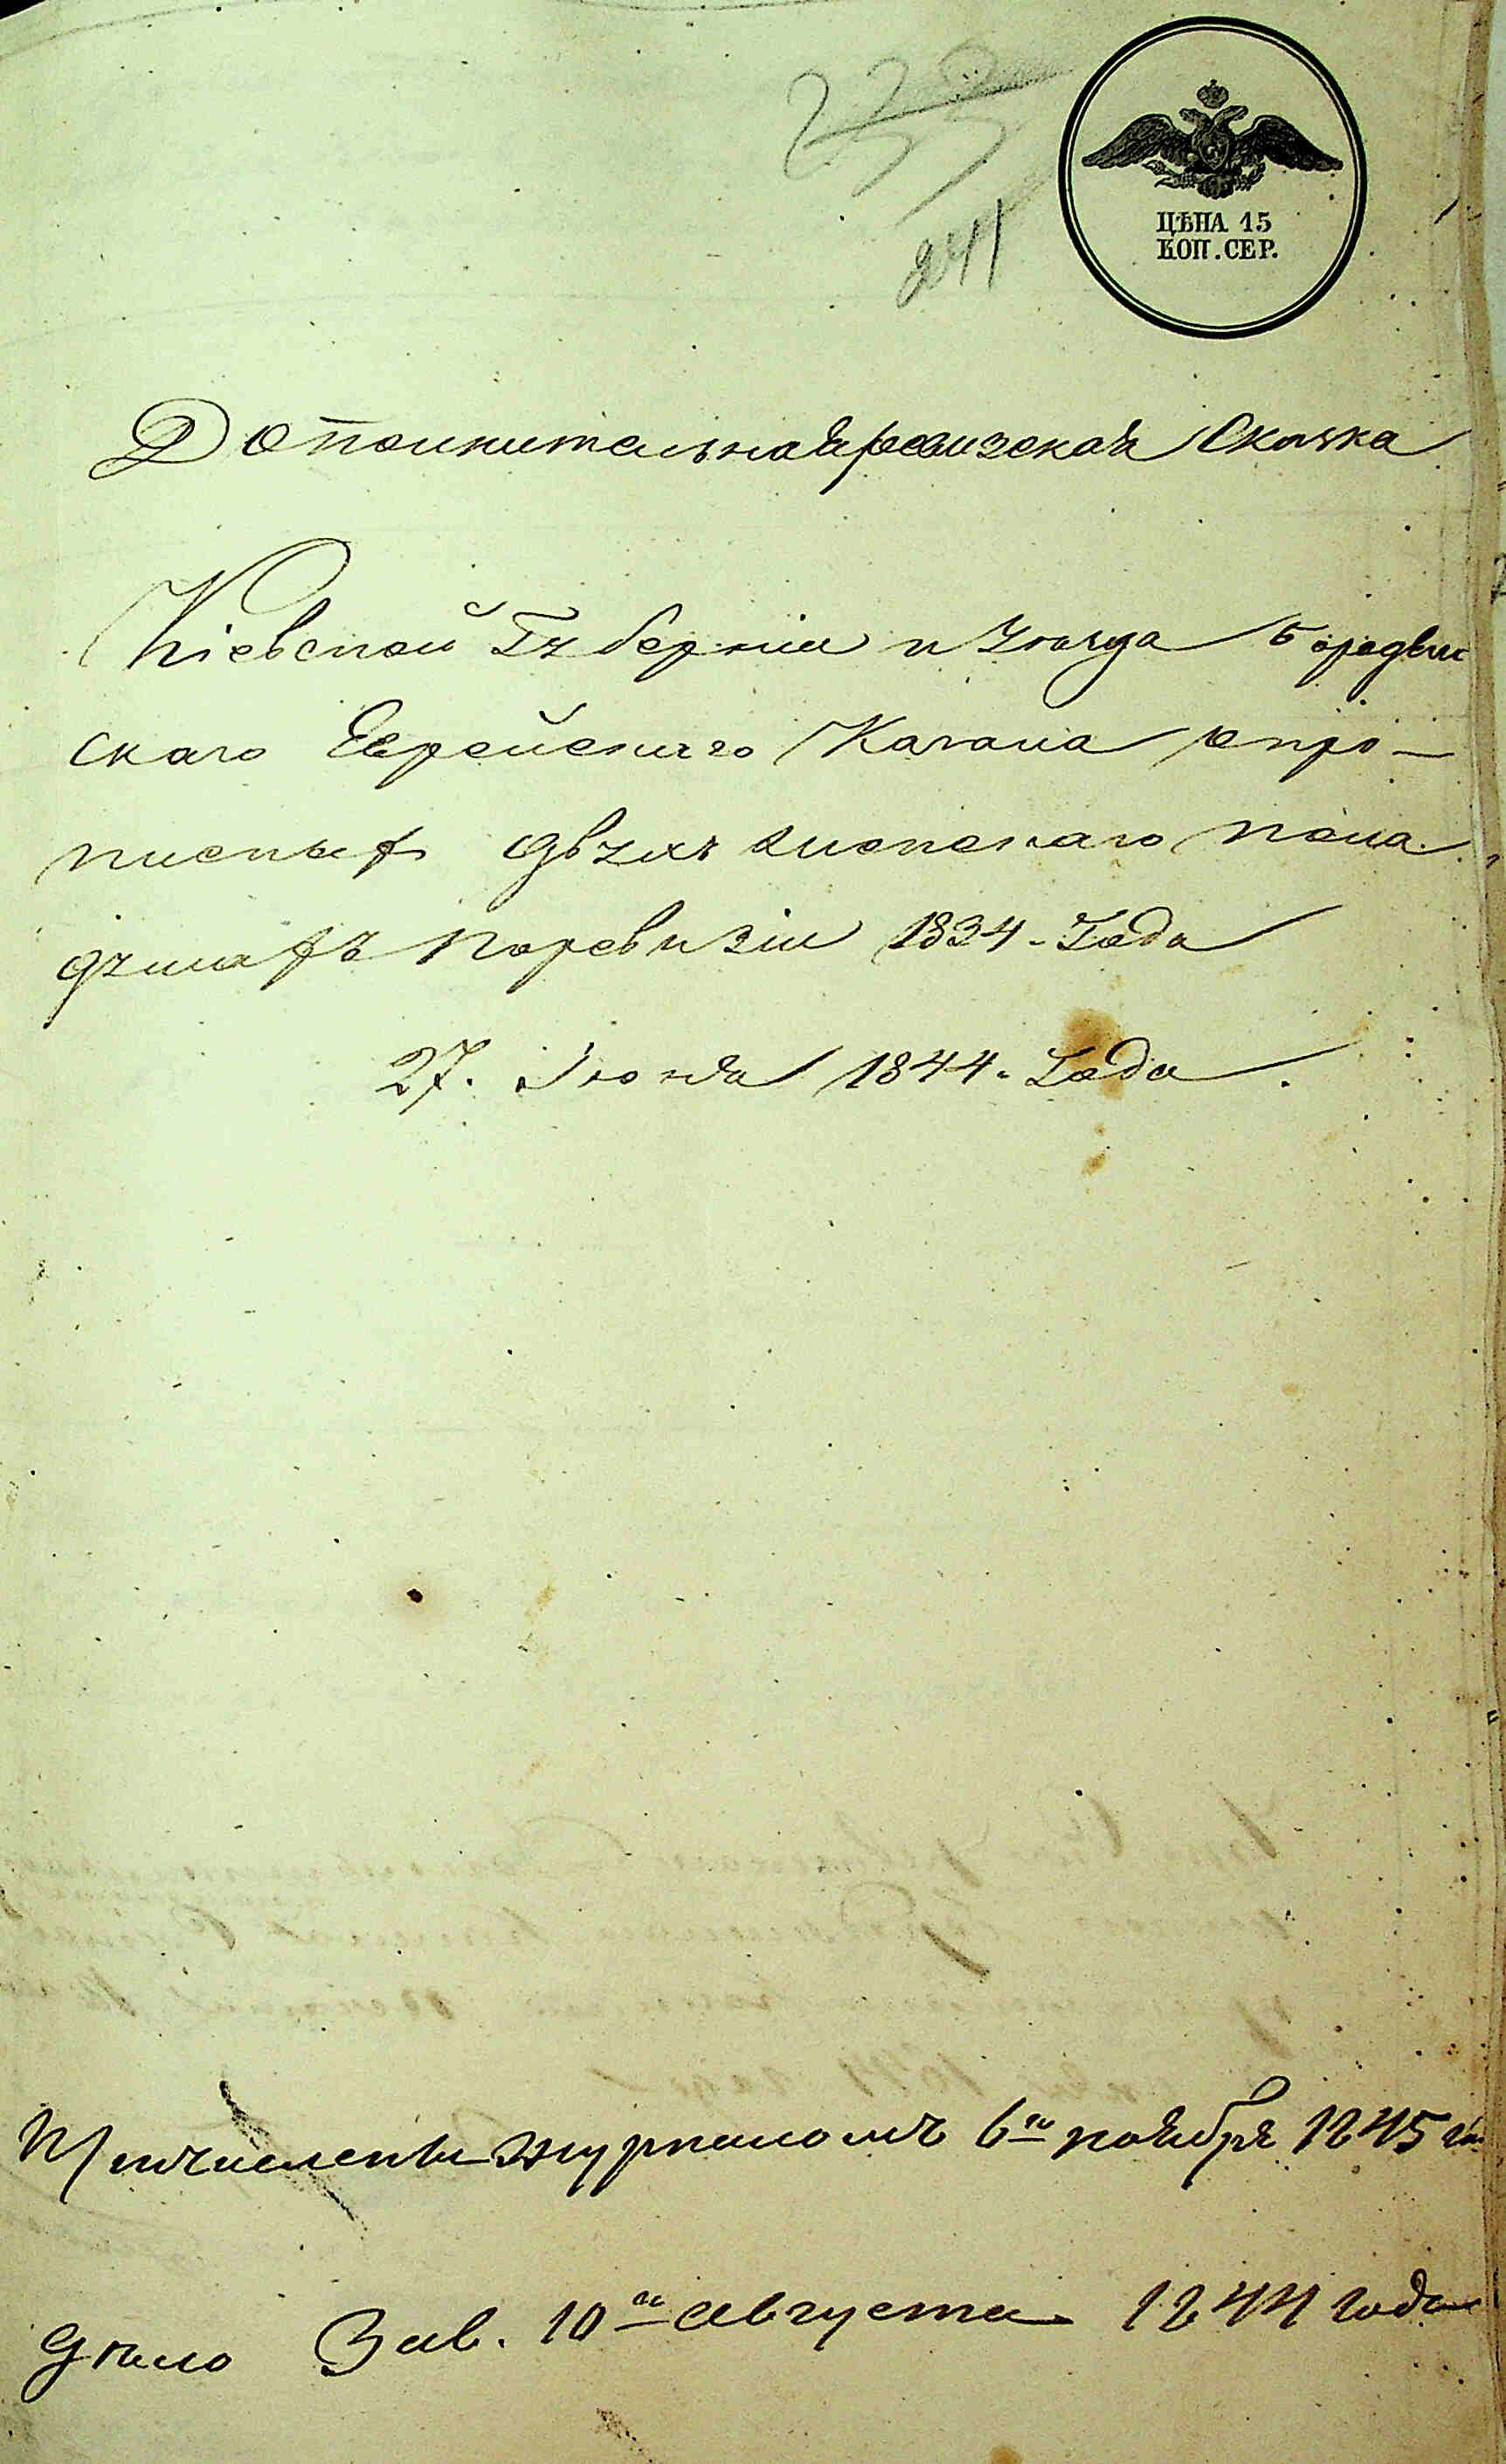 241
ЦѢНА 15
КОП. СЕР.
Дополнительная ревизская Сказка
Кіевской Губерніи и уѣзда Бородян
скаго Еврейскаго Кагала опро-
писныхъ двухъ мужескаго пола
душахъ поревизіи 1834 - Года
27. Іюня 1844 - Года.
Причислены журналомъ 6го ноября 1845 го
Дѣло Зав. 10го Августа 1844 года